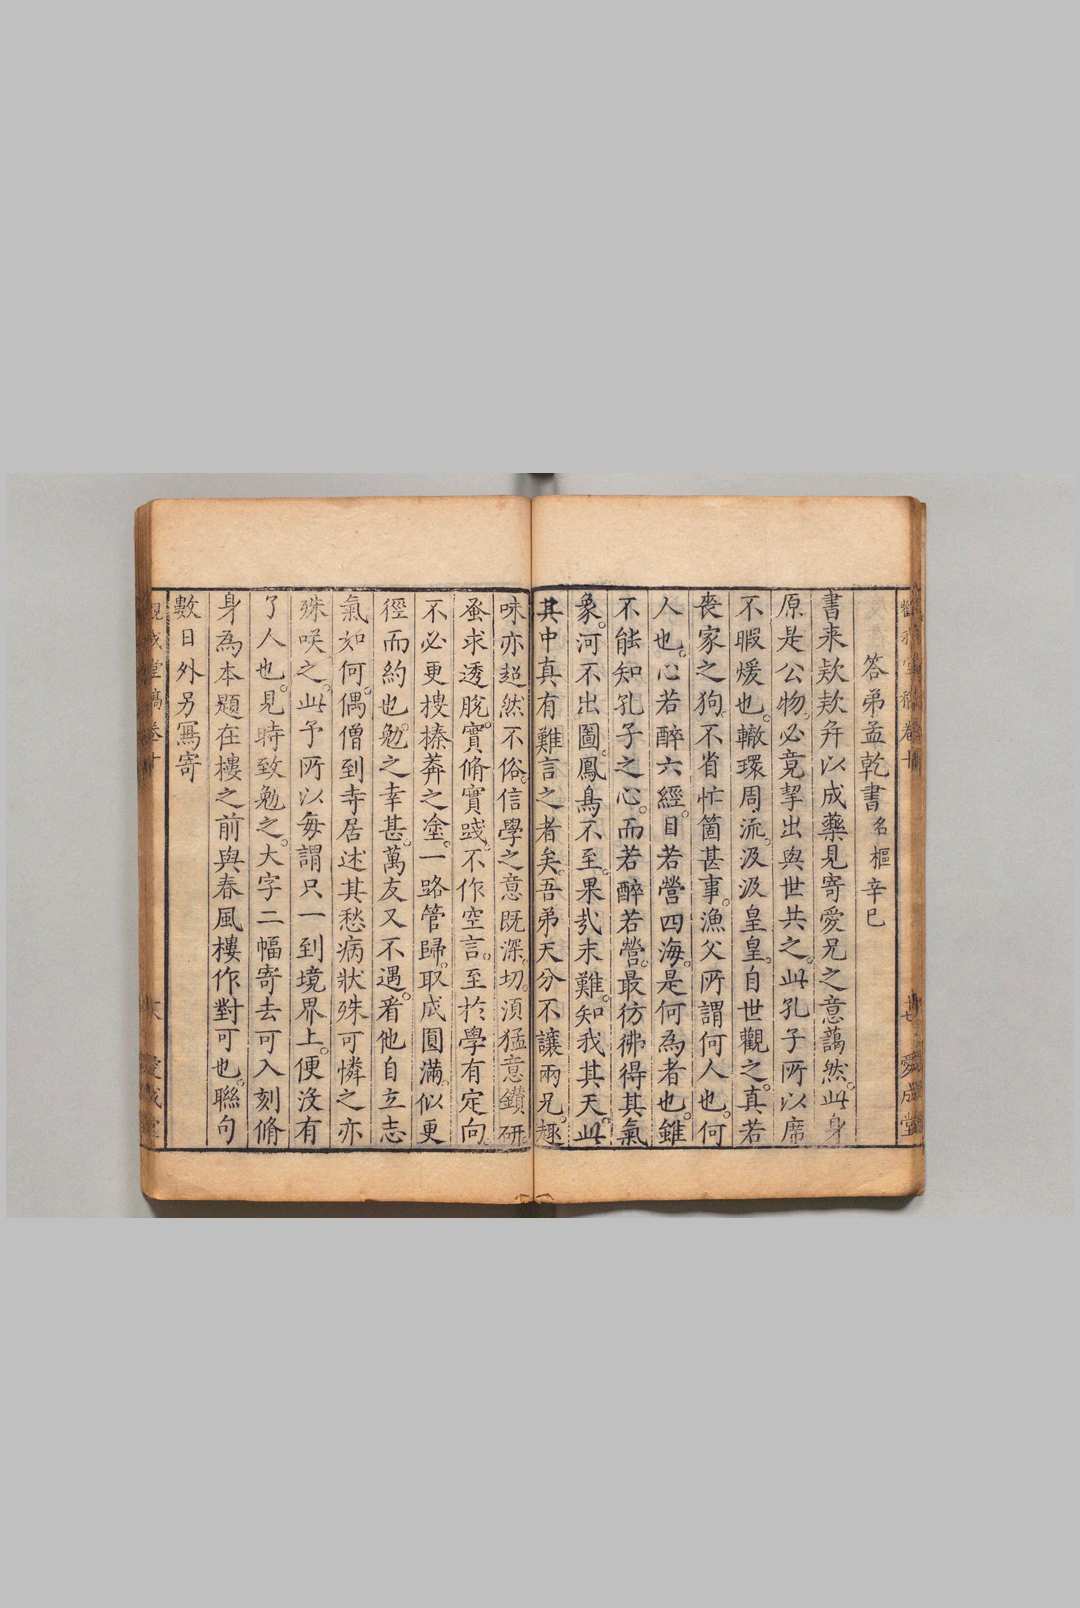 答弟孟乾書名樞辛巳
書来欵欵弁以成藥見寄愛兄之意藹然。此身
原是公物。必竟挈出與世共之。此孔子所以席
不暇煖也。轍環周流。汲汲皇皇。自世觀之。真若
喪家之狗。不省忙箇甚事。漁父所謂何人也。何
人也。心若醉六經。目若營四海。是何為者也。錐
不能知孔子之心。而若醉若營。最彷彿得其氣
象。河不出圖。鳳鳥不至。果哉末難。知我其天。此
其中真有難言之者矣。吾弟天分不讓兩兄。趣
味亦超然不俗。信學之意既深。切須猛意鑽研。
蚤求透脫。實脩實踐。不作空言。至於學有定向。
不必更摟榛莽之塗。一路管歸。取成圓滿。似更
徑而約也。勉之幸甚。萬友又不遇。看他自立志
氣如何。偶僧到寺居述其愁病狀殊可憐之亦
殊唉之。此予所以每謂只一到境界上。便沒有
了人也。見時致勉之。大字二幅寄去可入刻脩
身為本題在樓之前與春風樓作對可也。聯句
數日外另寫寄
愛成堂
觀我堂稿卷十